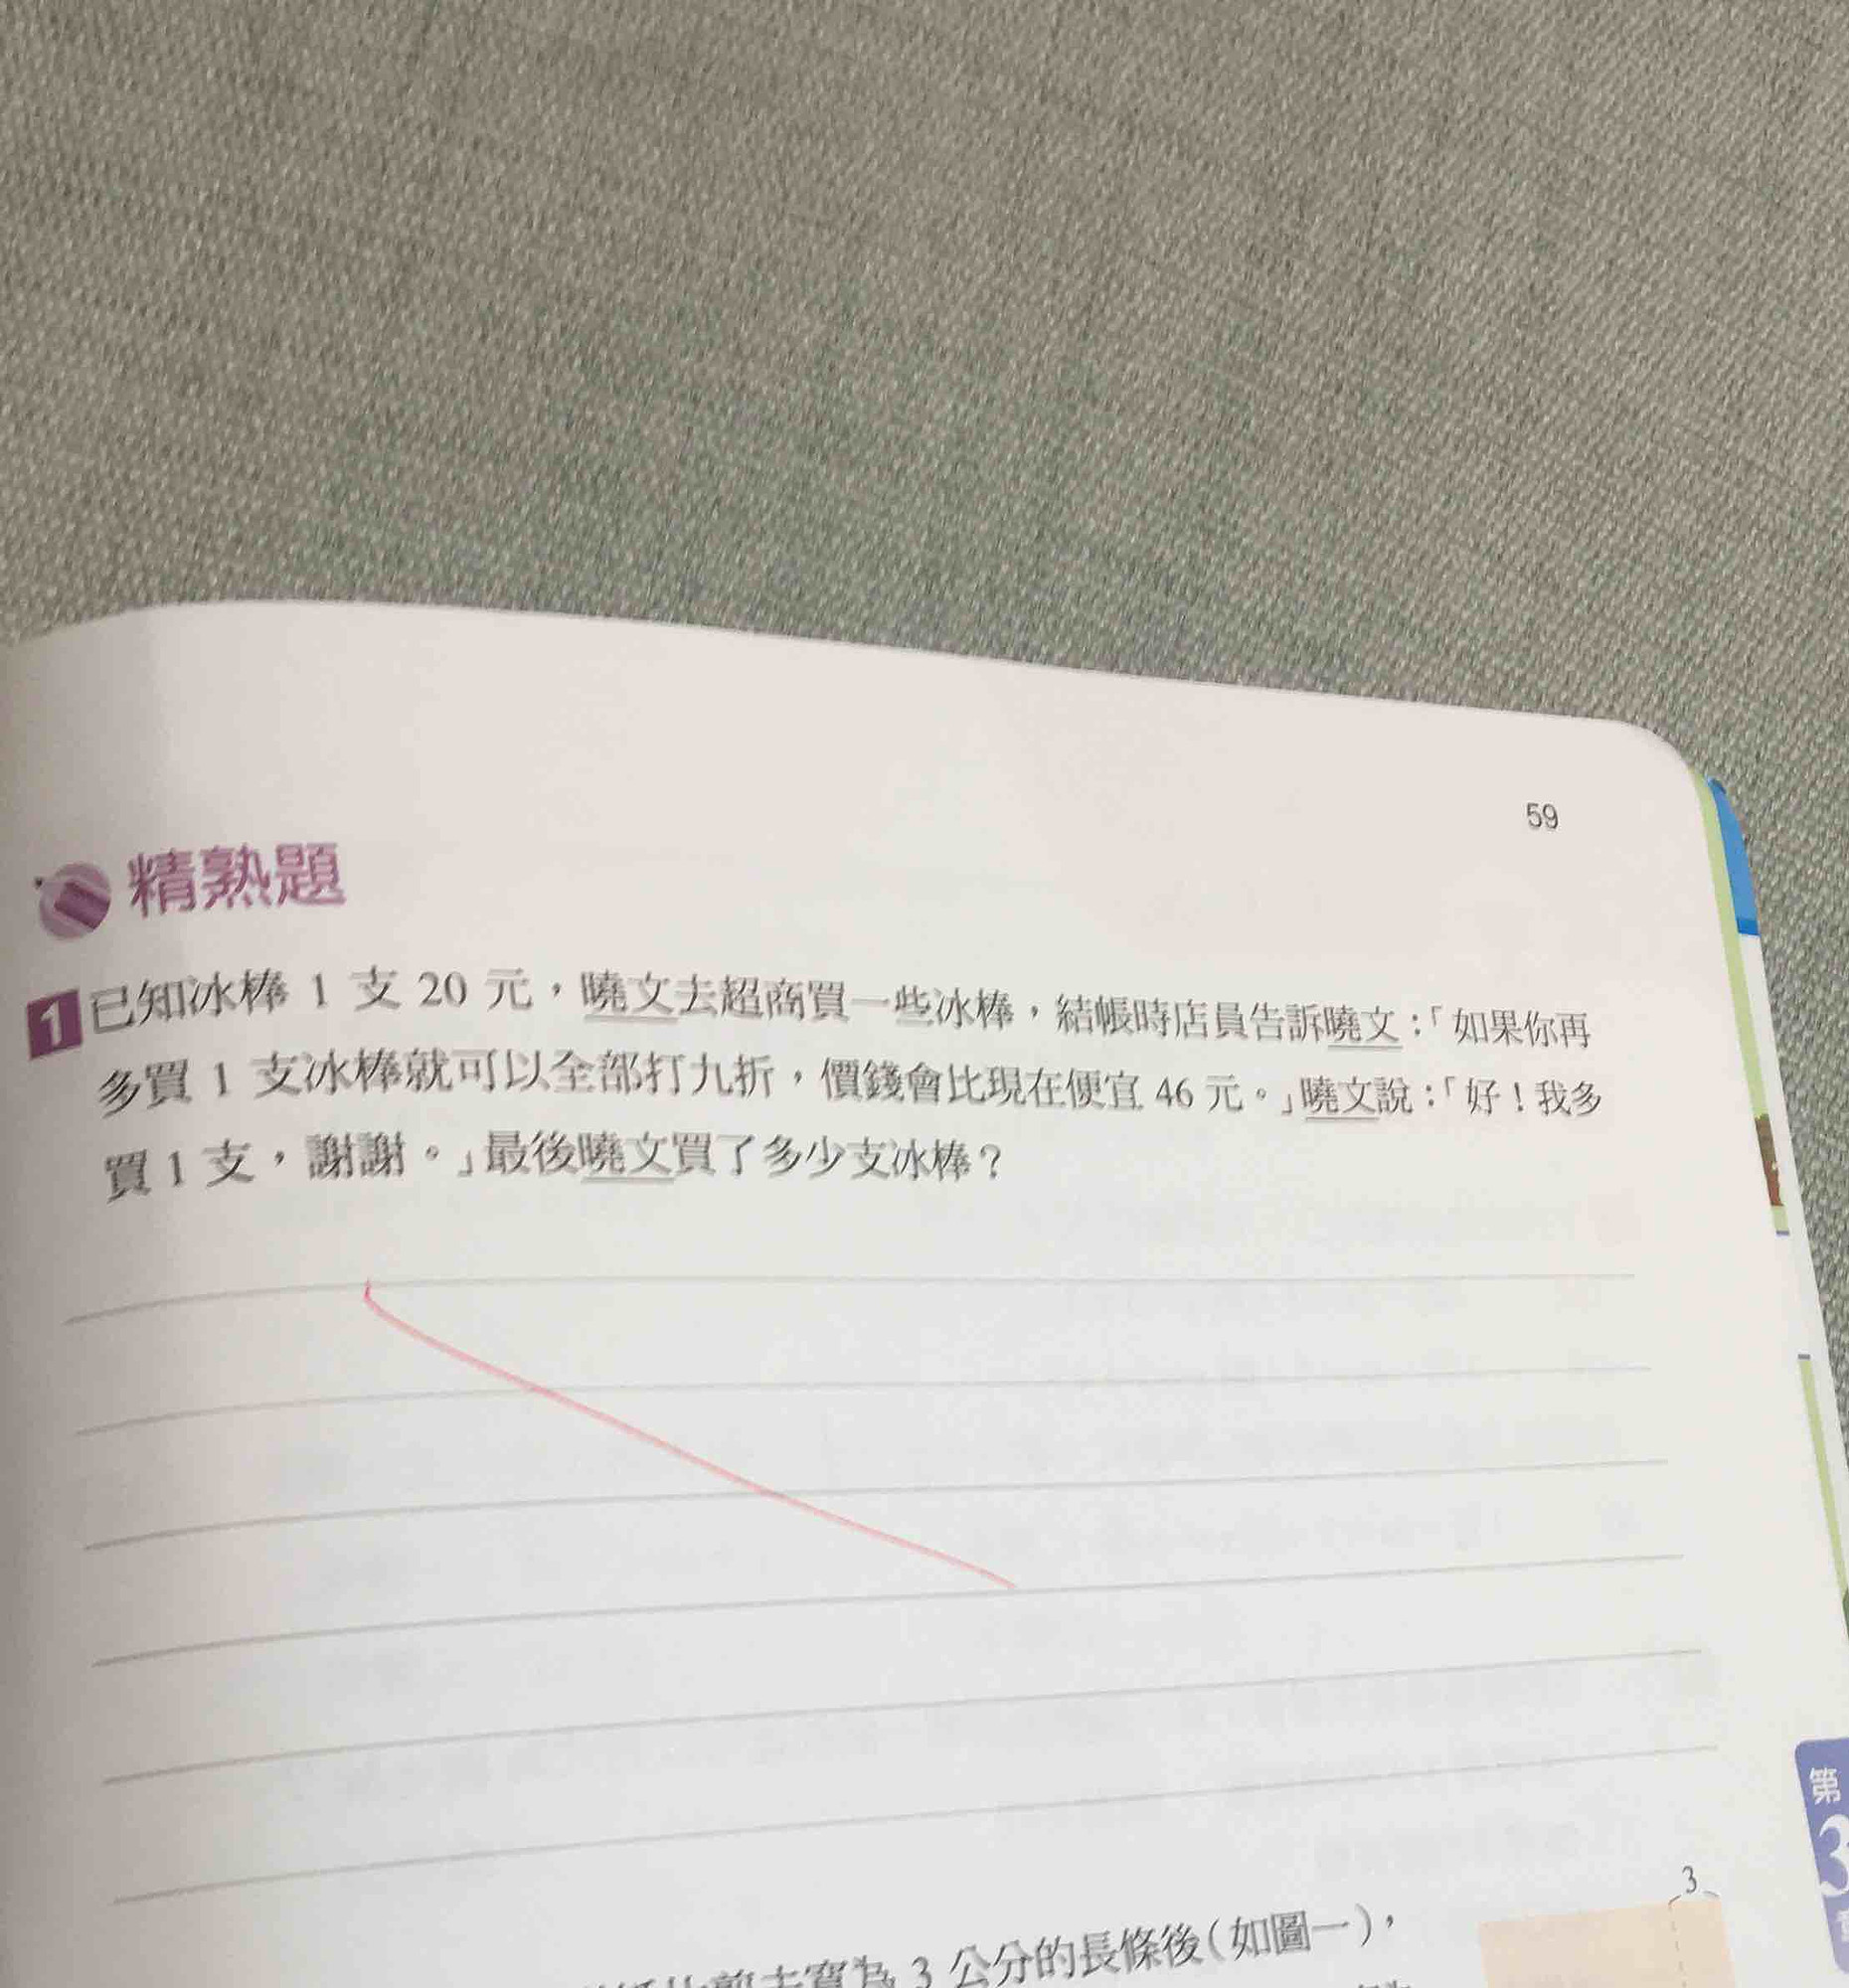 59
精熟題
1 已知冰棒 1 支 20 元，曉文去超商買一些冰棒，結帳時店員告訴曉文：「如果你再
多買 1 支冰棒就可以全部打九折，價錢會比現在便宜 46 元。」曉文說：「好！我多
買 1 支，謝謝。」最後曉文買了多少支冰棒？
3
為 3 公分的長條後（如圖一），
第
3